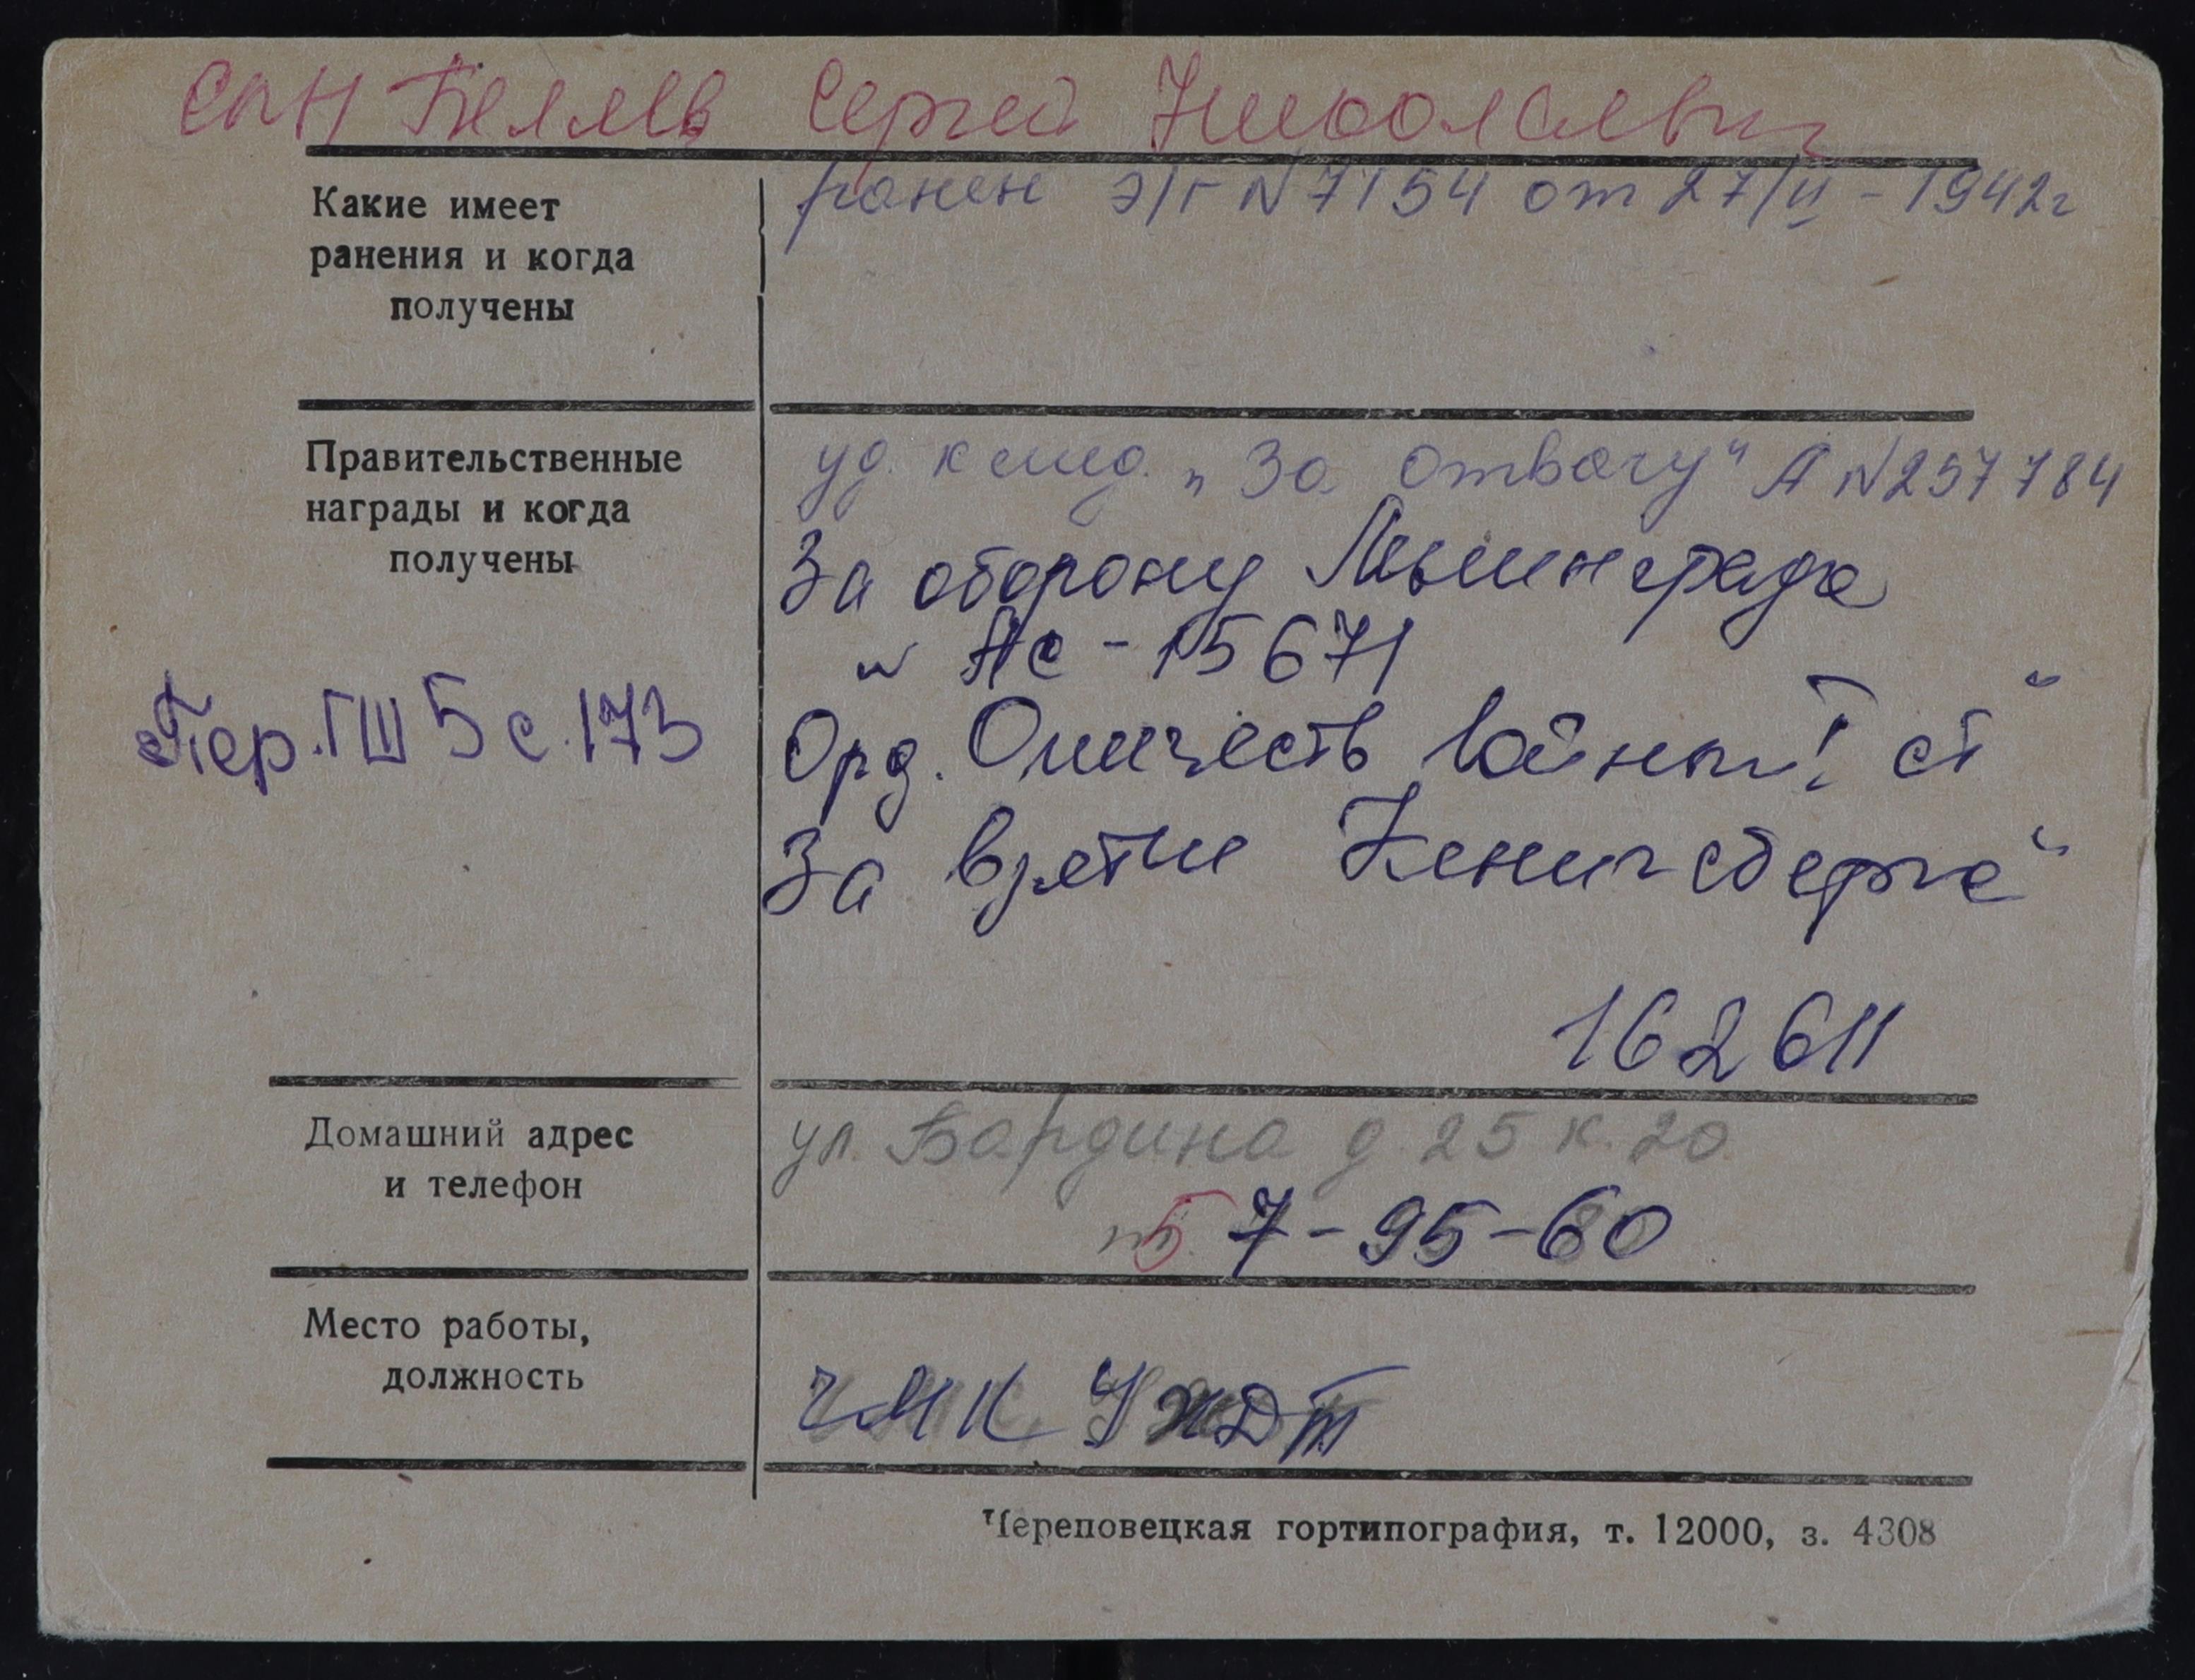 сын Беляев Сергей Николаевич
Какие имеет
ранения и когда
получены
ранен э/г N 7154 от 27/II - 1942г
Правительственные
награды и когда
получены
уд. к мед. „За отвагу" А N 257784
За оборону Ленинграда
" Ас - 15671
Пер. ГШ 5 с. 173
Орд. Отечеств войны I ст"
За взятие Кенигсберга"
162611
Домашний адрес
и телефон
ул. Бардина д. 25 к. 20
т. 5 7-95-60
Место работы,
должность
ЧМК УЖДТ
Череповецкая гортипография, т. 12000, з. 4308